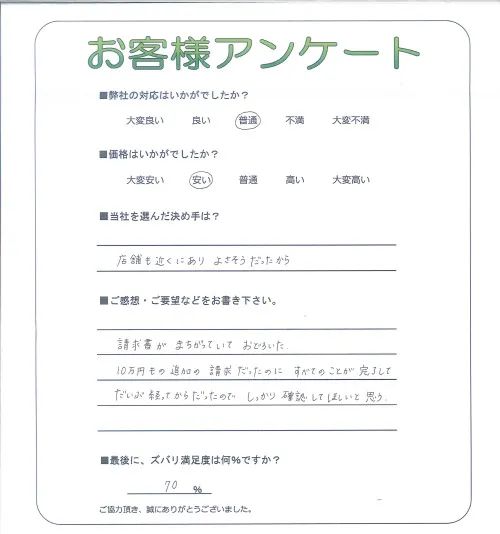 お客様アンケート
■弊社の対応はいかがでしたか？
大変良い 良い 普通 不満 大変不満
■価格はいかがでしたか？
大変安い 安い 普通 高い 大変高い
■当社を選んだ決め手は？
店舗も近くにあり よさそうだったから
■ご感想・ご要望などをお書き下さい。
請求書が まちがっていて おどろいた.
10万円もの追加の 請求だったのに すべてのことが 完了して
だいぶ経ってからだったので しっかり 確認してほしいと思う.
■最後に、ズバリ満足度は何%ですか？
70 %
ご協力頂き、誠にありがとうございました。